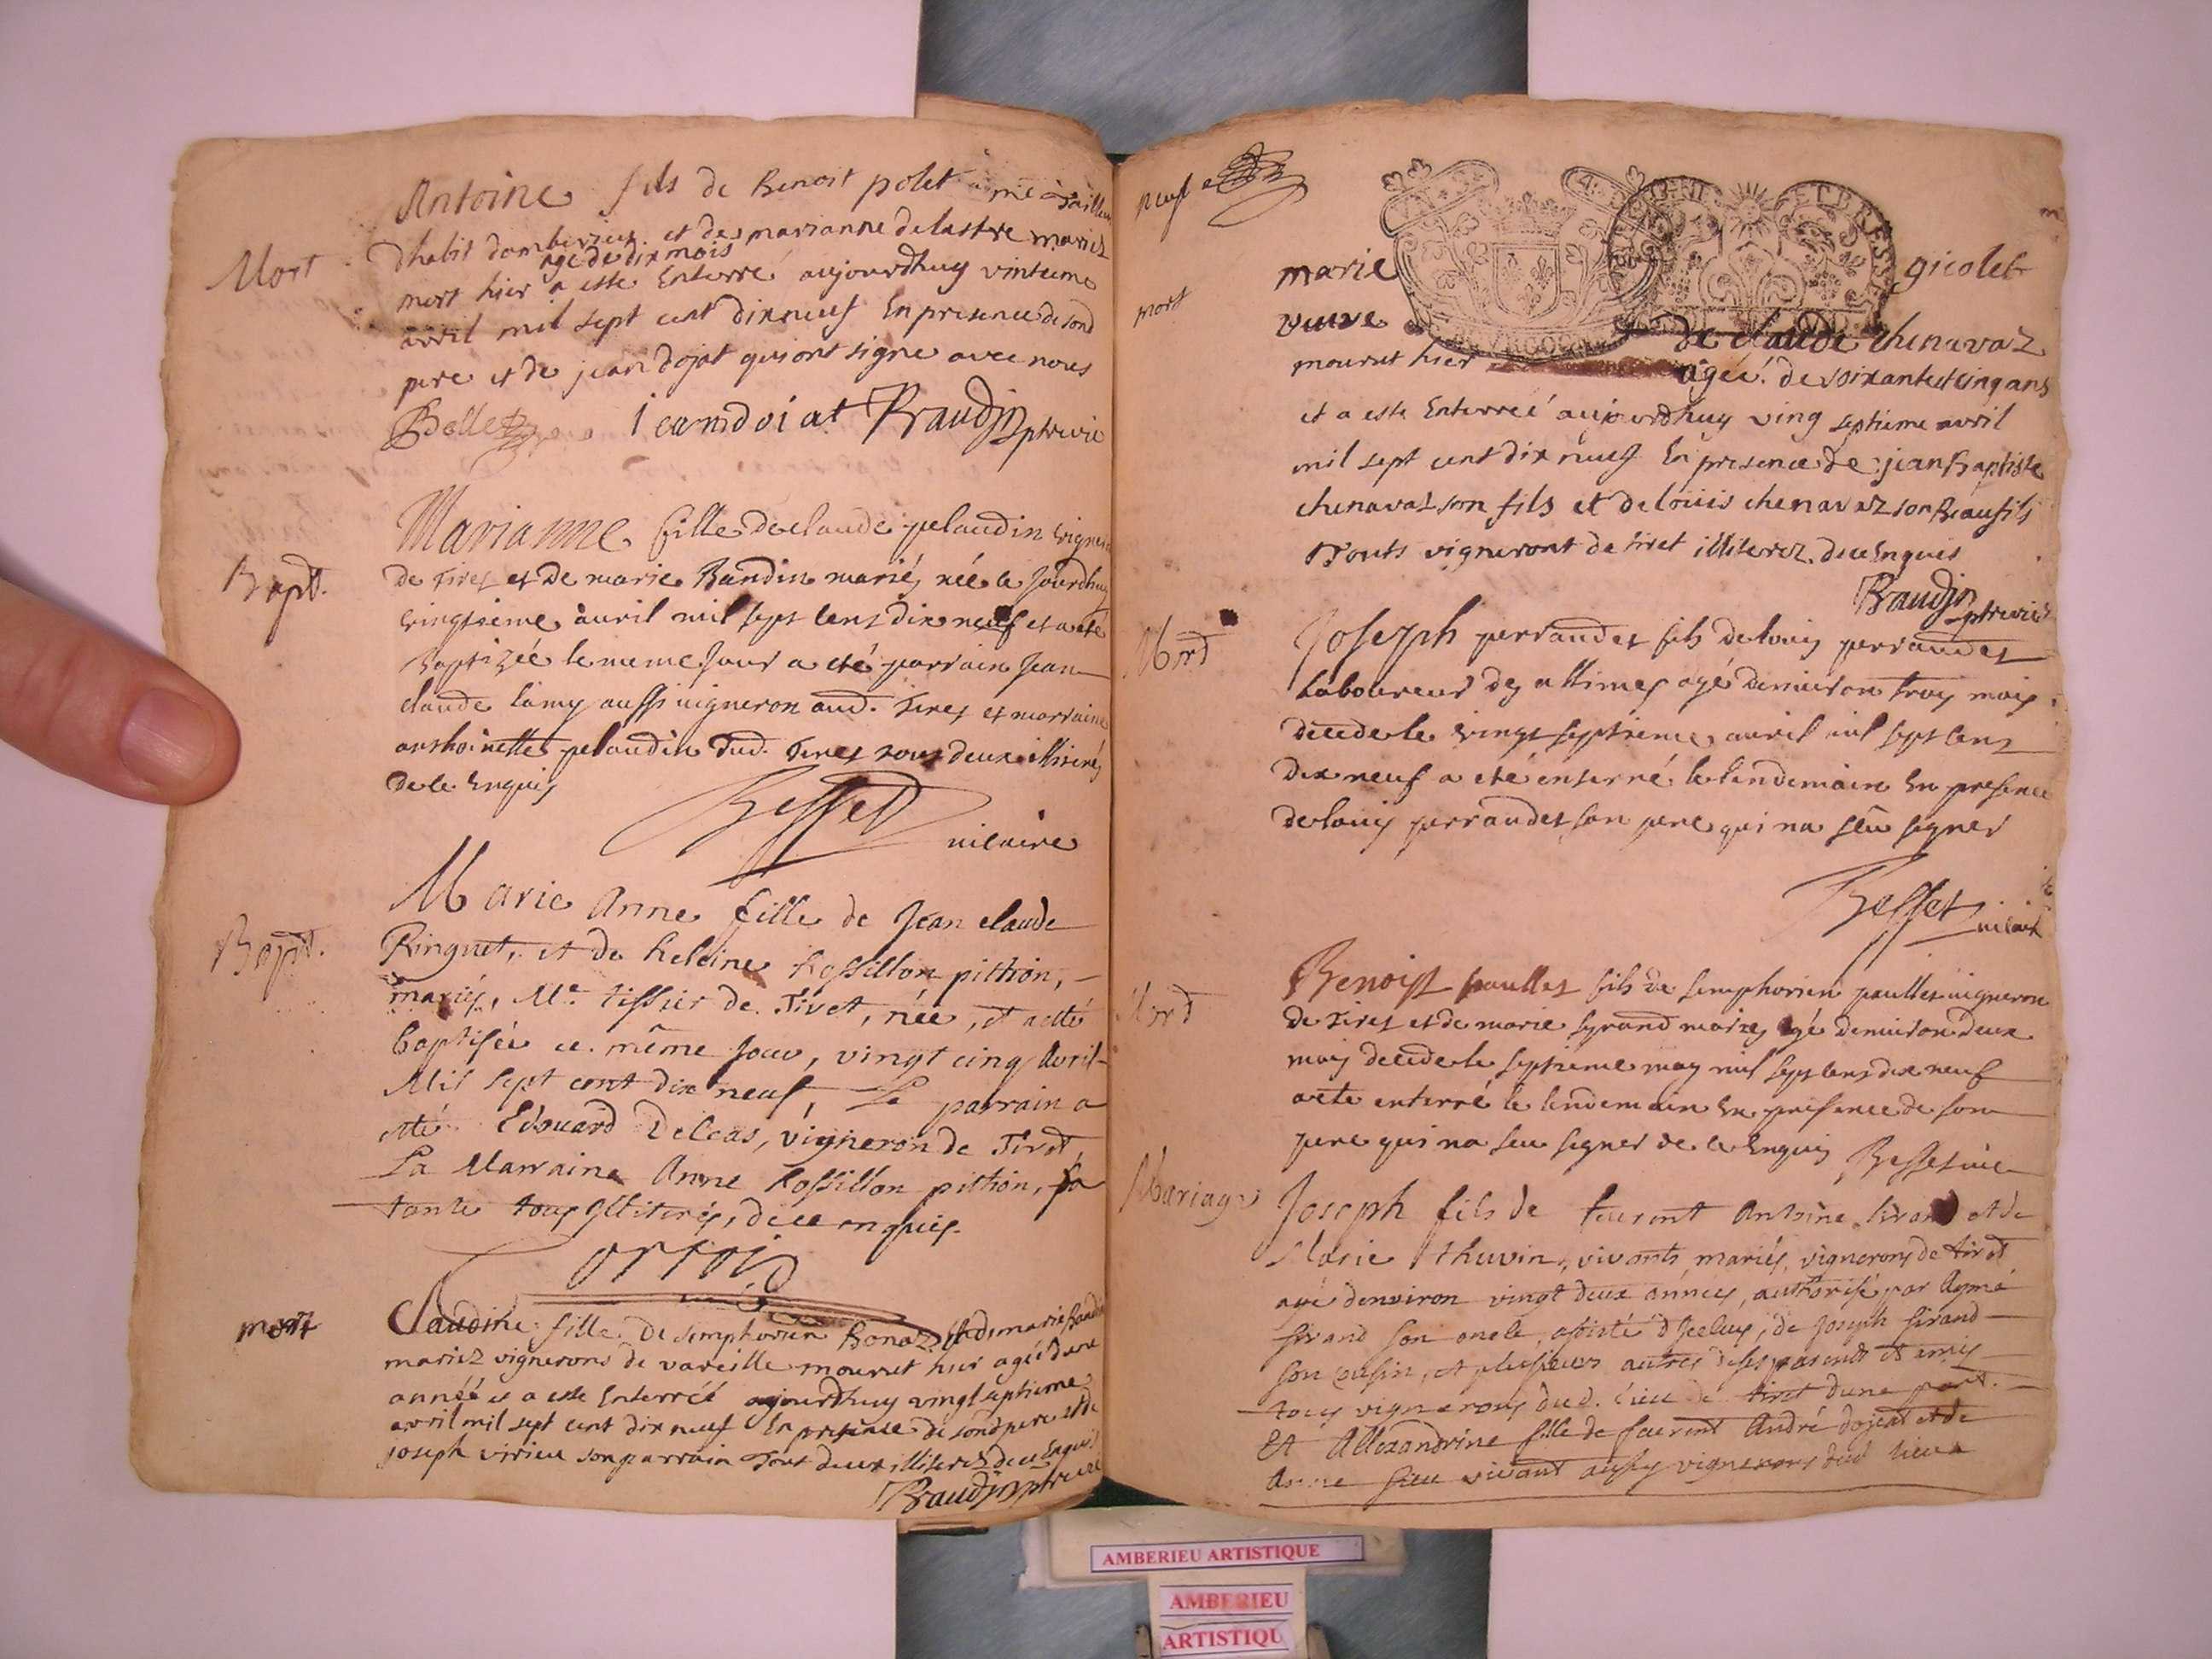 Mort
Antoine fils de Benoit polet me tailleur
dhabit damberieux et de marianne delastre mariez
agé de dix mois
mort hier a este Enterré aujourdhuy vintieme
avril mil sept cent dixneuf En presence de sond
pere et de jean dojat qui ont signe avec nous
Pollet jeandoiat Baudin ptre vic
Bapt.
Marianne fille de claude pelaudin vigneron
de Tiret et de marie Baudin mariés née le jourdhuy
vingtieme avril mil sept cens dix neuf et a eté
Baptizée le meme jour a eté parrain Jean
claude Lamy aussi vigneron aud. Tiret et marraine
anthoinette pelaudin dud. Tiret tous deux illiterés
de ce Enquis
Besset vicaire
Bapt.
Marie Anne fille de Jean claude
Ringuet, et de heleine Rossillon pittion,
mariés, Me tissier de Tiret, née, et a etté
baptisée ce même jour, vingt cinq Avril
Mil sept cent dix neuf, Le parrain a
etté Edouard Deleas, vigneron de Tiret
La Marraine Anne Rossillon pittion, sa
tante tous illiterés, de ce enquis.
mort
Claudine fille de simphorien Bonaz et de marie Baudin
mariez vignerons de vareille mourut hier agée dune
année et a este Enterréé aujourdhuy vingt septieme
avril mil sept cent dix neuf En presence de sond pere et de
joseph virieu son parrain Tous deux illiterez de ce Enquis
Baudin ptre vic
neuf
mort
marie gicolet
veuve de claude chenavaz
mourut hier agée de soixante et cinq ans
et a este Enterreé aujourdhuy ving septieme avril
mil sept cent dix neuf En presence de jean Baptiste
chenavaz son fils et de loüis chenavaz son Beaufils
Touts vigneront de tiret illiterez de ce Enquis
Baudin ptre vic
Mort
Joseph perraudet fils de louis perraudet
Laboureur des allimes agé denviron troys mois
decede le vingt septieme avril mil sept cens
dix neuf a eté enterré le lendemain En presence
de louis perraudet son pere qui na seu signer
Besset vicaire
Mort
Benoist paullet fils de simphorien paullet vigneron
de Tiret et de marie sirand mariez agé denviron deux
mois decede le septieme may mil sept cens dix neuf
a eté enterré le lendemain En presence de son
pere qui na seu signer de ce Enquis Besset vic
Mariage
Joseph fils de feurent Antoine sirand et de
Marie thuvin, vivants mariés, vignerons de tiret
agé denviron vingt deux années, authorisé par Aymé
sirand son oncle, assisté d'Iceluy, de Joseph sirand
son cousin, et plusieurs autres de ses parents et amis
tous vignerons dud. lieu de tiret dune part.
Et Allexandrine fille de feurent André dojeat et de
Anne sieu vivant aussy vignerons dud lieu
AMBERIEU ARTISTIQUE
AMBERIEU
ARTISTIQU